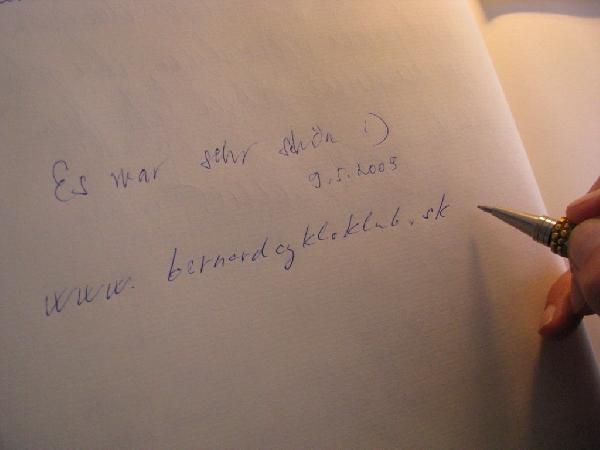 Es war sehr schön :)
9.5.2009
www.bernardcykloklub.sk